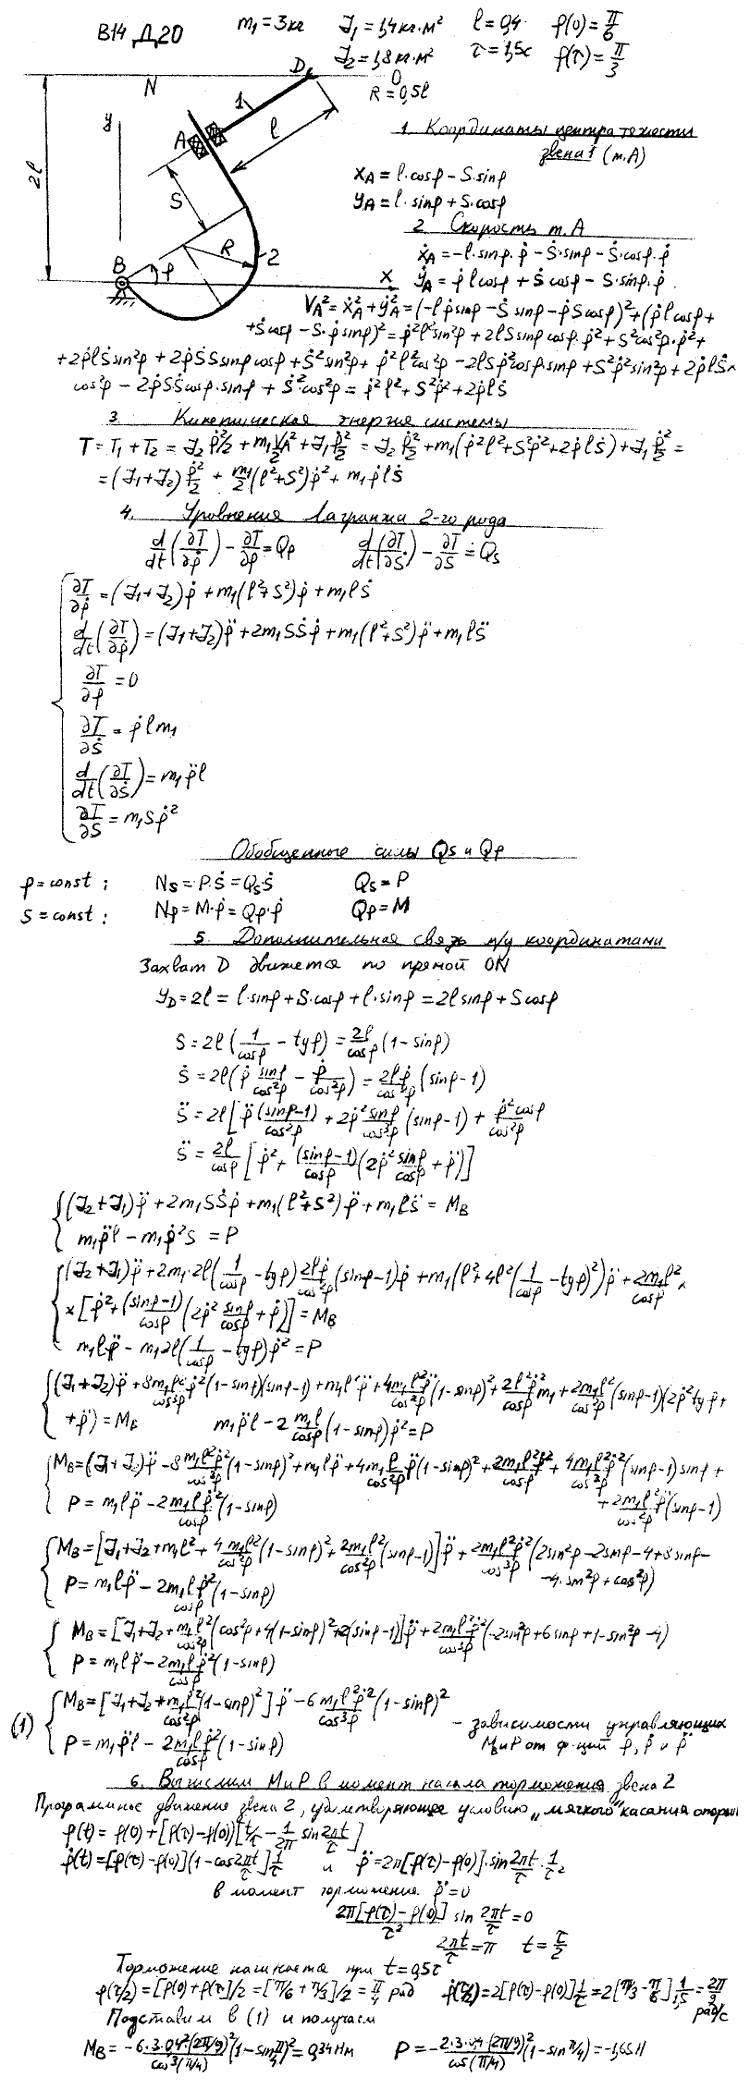 В14 Д20 m₁=3кг J₁=1,4кг·м² l=0,4 φ(0)=π/6
J₂=1,8кг·м² τ=1,5с φ(τ)=π/3
D O
N R=0,5l
y 1 A l 2l S R 2 B φ x
1. Координаты центра тяжести
звена 1 (т.А)
x_A = l·cosφ − S·sinφ
y_A = l·sinφ + S·cosφ
2 Скорость т.А
ẋ_A = −l·sinφ·φ̇ − Ṡ·sinφ − S·cosφ·φ̇
ẏ_A = φ̇ l cosφ + Ṡ cosφ − S·sinφ·φ̇
V_A² = ẋ_A² + ẏ_A² = (−lφ̇ sinφ − Ṡ sinφ − φ̇ S cosφ)² + (φ̇ l cosφ +
+ Ṡ cosφ − S·φ̇ sinφ)² = φ̇² l² sin²φ + 2lS sinφ cosφ·φ̇² + S² cos²φ·φ̇² +
+ 2φ̇ lṠ sin²φ + 2φ̇ SṠ sinφ cosφ + Ṡ² sin²φ + φ̇² l² cos²φ − 2lSφ̇² cosφ·sinφ + S²φ̇² sin²φ + 2φ̇ lṠ ×
cos²φ − 2φ̇ SṠ cosφ·sinφ + Ṡ² cos²φ = φ̇² l² + S²φ̇² + 2φ̇ lṠ
3. Кинетическая энергия системы
T = T₁ + T₂ = J₂ φ̇²/2 + m₁V_A²/2 + J₁ φ̇²/2 = J₂ φ̇²/2 + m₁(φ̇² l² + S²φ̇² + 2φ̇ lṠ) + J₁ φ̇²/2 =
= (J₁+J₂) φ̇²/2 + m₁/2 (l²+S²)φ̇² + m₁φ̇ lṠ
4. Уровнения Лагранжа 2-го рода
d/dt(∂T/∂φ̇) − ∂T/∂φ = Qφ d/dt(∂T/∂Ṡ) − ∂T/∂S = Q_S
∂T/∂φ̇ = (J₁+J₂)φ̇ + m₁(l²+S²)φ̇ + m₁lṠ
d/dt(∂T/∂φ̇) = (J₁+J₂)φ̈ + 2m₁SṠφ̇ + m₁(l²+S²)φ̈ + m₁lS̈
∂T/∂φ = 0
∂T/∂Ṡ = φ̇ l m₁
d/dt(∂T/∂Ṡ) = m₁φ̈ l
∂T/∂S = m₁Sφ̇²
Обобщенные силы Q_S и Qφ
φ=const; N_S = P·Ṡ = Q_S·Ṡ Q_S = P
S=const; Nφ = M·φ̇ = Qφ·φ̇ Qφ = M
5. Дополнительная связь м/у координатами
Захват D движется по прямой ON
y_D = 2l = l·sinφ + S·cosφ + l·sinφ = 2l sinφ + S cosφ
S = 2l(1/cosφ − tgφ) = 2l/cosφ (1−sinφ)
Ṡ = 2l(φ̇ sinφ/cos²φ − φ̇/cos²φ) = 2lφ̇/cos²φ (sinφ−1)
S̈ = 2l[φ̈ (sinφ−1)/cos²φ + 2φ̇² sinφ/cos³φ (sinφ−1) + φ̇² cosφ/cos²φ
S̈ = 2l/cosφ [φ̇² + (sinφ−1)/cosφ (2φ̇² sinφ/cosφ + φ̈)]
(J₂+J₁)φ̈ + 2m₁SṠφ̇ + m₁(l²+S²)φ̈ + m₁lS̈ = M_B
m₁φ̈ l − m₁φ̇² S = P
(J₂+J₁)φ̈ + 2m₁·2l(1/cosφ − tgφ) 2lφ̇/cos²φ (sinφ−1)φ̇ + m₁(l²+4l²(1/cosφ − tgφ)²)φ̈ + 2m₁l²/cosφ ×
×[φ̇² + (sinφ−1)/cosφ (2φ̇² sinφ/cosφ + φ̈)] = M_B
m₁lφ̈ − m₁2l(1/cosφ − tgφ)φ̇² = P
(J₁+J₂)φ̈ + 8m₁l²/cos³φ φ̇²(1−sinφ)(sinφ−1) + m₁l²φ̈ + 4m₁l²φ̈/cos²φ (1−sinφ)² + 2l²φ̇²/cosφ m₁ + 2m₁l²/cos²φ (sinφ−1)(2φ̇² tgφ +
+φ̈) = M_B m₁φ̈ l − 2 m₁l/cosφ (1−sinφ)φ̇² = P
M_B = (J₁+J₂)φ̈ − 8 m₁l²φ̇²/cos³φ (1−sinφ)² + m₁lφ̈ + 4m₁l/cos²φ φ̈(1−sinφ)² + 2m₁l²φ̇²/cosφ + 4m₁l²φ̇²/cos³φ (sinφ−1) sinφ +
+ 2m₁l²φ̈/cos²φ (sinφ−1)
P = m₁lφ̈ − 2m₁lφ̇²/cosφ (1−sinφ)
M_B = [J₁+J₂+m₁l² + 4m₁l²/cos²φ (1−sinφ)² + 2m₁l²/cos²φ (sinφ−1)]φ̈ + 2m₁l²φ̇²/cos³φ (2sin²φ − 2sinφ − 4 + 8sinφ −
−4·sin²φ + cos²φ)
P = m₁lφ̈ − 2m₁lφ̇²/cosφ (1−sinφ)
M_B = [J₁+J₂+ m₁l²/cos²φ (cos²φ + 4(1−sinφ)² + 2(sinφ−1)]φ̈ + 2m₁l²φ̇²/cos³φ (−2sin²φ + 6sinφ + 1 − sin²φ − 4)
P = m₁lφ̈ − 2m₁lφ̇²/cosφ (1−sinφ)
(1) M_B = [J₁+J₂+ m₁l²/cos²φ (1−sinφ)²]φ̈ − 6 m₁l²φ̇²/cos³φ (1−sinφ)²
P = m₁φ̈ l − 2m₁lφ̇²/cosφ (1−sinφ)
– зависимости управляющих
М и Р от ф-ций φ, φ̇ и φ̈
6. Вычислим М и Р в момент начала торможения звена 2
Программное движение звена 2, удовлетворяющее условию „мягкого" касания опоры
φ(t) = φ(0) + [φ(τ)−φ(0)][t/τ − 1/2π sin 2πt/τ]
φ̇(t) = [φ(τ)−φ(0)](1−cos 2πt/τ) 1/τ и φ̈ = 2π[φ(τ)−φ(0)]·sin 2πt/τ · 1/τ²
в момент торможения φ̈=0
2π[φ(τ)−φ(0)]/τ² sin 2πt/τ = 0
2πt/τ = π t = τ/2
Торможение начнется при t=0,5τ
φ(τ/2) = [φ(0)+φ(τ)]/2 = [π/6+π/3]/2 = π/4 рад φ̇(τ/2) = 2[φ(τ)−φ(0)] 1/τ = 2[π/3 − π/6] 1/1,5 = 2π/9 рад/с
Подставим в (1) и получаем
M_B = −6·3·0,4²(2π/9)²/cos³(π/4) (1−sin π/4)² = 0,34 Нм P = −2·3·0,4(2π/9)²/cos(π/4) (1−sin π/4) = −1,65Н